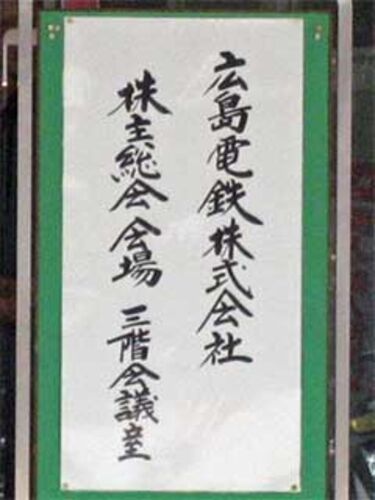 広島電鉄株式会社
株主総会会場 三階会議室